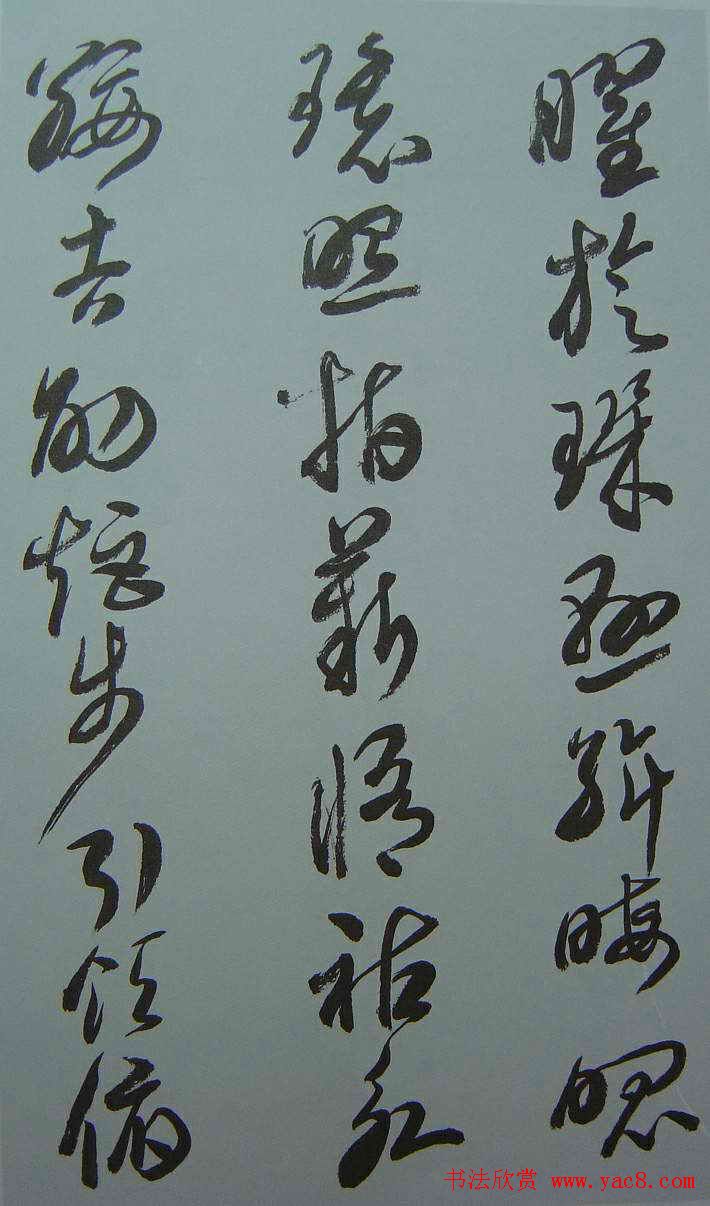 曜旋璣懸斡晦魄
環照指薪修祜永
綏吉劭矩步引領俯
书法欣赏 www.yac8.com